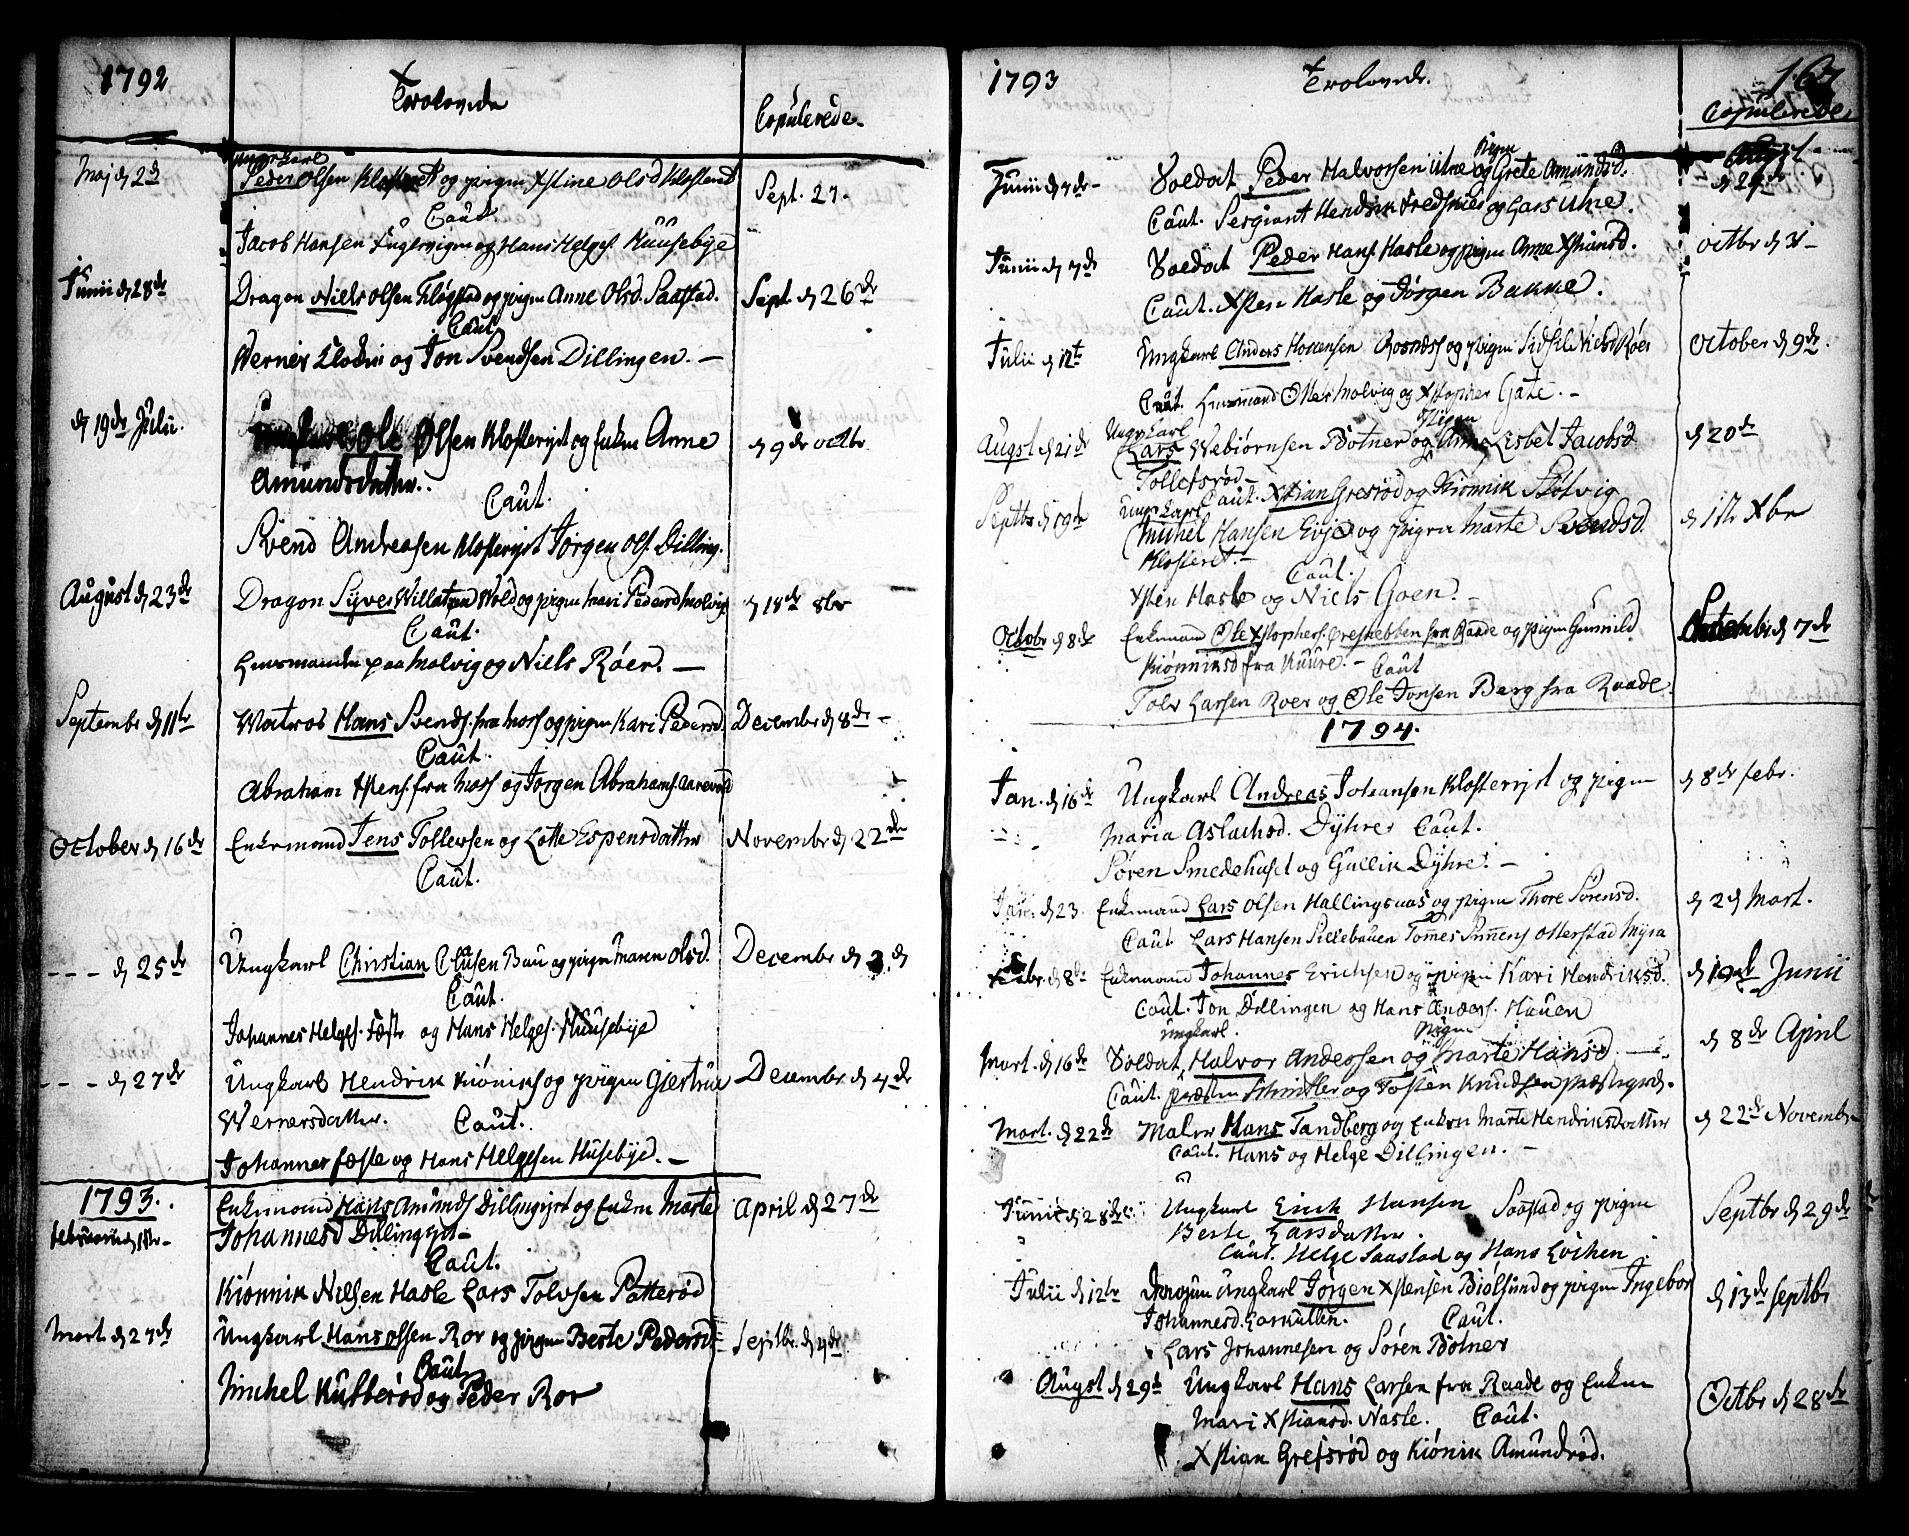 1792
Trolovede
Copulerede
Maj d 2d
Ungkarl
Peder Olsen Klosteret og pigen Xstine Olsd Klosteret
Sept. 27.
Caut.
Jacob Hansen Fuglevigen og Hans Helges. Huusebye
Junii d 28de
Dragon Niels Olsen Fløgstad og pigen Anne Olsd. Saastad.
Sept. d 26de
Caut
Werner Kloster og Jon Svendsen Dillingen. -
d 19de Julii.
Ungkarl Ole Olsen Klosterejet og Enken Anne
d 9de octbr
Amundsdatter.
Caut.
Svend Andreasen Klosterejet Jørgen Ols. Dilling.
August d 23de
Dragon Syver Willatzen Wold og pigen Mari Pedersd Molvig
d 18de 8br
Caut.
Lensmanden paa Molvig og Niels Røer. -
Septembr d 11te
Matros Hans Svends. fra Moss og pigen Kari Pedersd.
Decembr d 8de -
Caut.
Abraham Xstens. fra Moss og Jørgen Abrahams. Aarevold
October d 16de
Enkemand Jens Tollefsen og Lotte Espensdatter
Novembr d 22de
Caut.
- - - d 25de
Ungkarl Christian Clausen Bau og pigen Maren Olsd.
Decembr d 3d
Caut.
Johannes Helges. Feste og Hans Helges. Huusebye
- - - d 27de
Ungkarl Hendrik Kiøniks og pigen Giertrue
Decembr d 4de
Wernersdatter. Caut.
Johannes Feste og Hans Helgesen Husebye. -
1793.
Enkemand Hans Amunds Dillingejet og Enken Marte
April d 27de
Februarii d 18de -
Johannesd Dillingejet -
Caut.
Kiønnik Nilsen Hasle Lars Tolvsen Patterød
Mart. d 27de
Ungkarl Hans Olssen Ror og pigen Berte Pedersd.
Septbr. d 4de
Caut
Michel Kutterød og Peder Ror
1793
Trolovede.
167
Copulerede
Junii d 7de -
Pigen
Soldat Peder Halvorsen Utne og Grete Amundsd.
August
d 29de
Caut. Sergiant Hendrik Fredskier og Lars Utne.
Junii d 7de
Soldat Peder Hans. Hasle og pigen Anne Xstiansd.
octbr d 3i -
Caut. Xsten Hasle og Jørgen Bakke.
Julii d 12te
Ungkarl Anders Mortensen Rosnæss og pigen Sidsel Nielsd Røer
October d 9de.
Caut. Lensmand Oller Molvig og Xstopher Gate. -
Augst d 21de
Ungkarl
Pigen
Lars Webiørnsen Botner og Anne Lisbet Jacobsd
d 20de
Tollefsrød -
Caut. Xstian Gresrød og Kiønnik Solvig
Septbr d 19de
Ungkarl
Michel Hansen Evje og pigen Marte Svendsd.
d 1ste Xbr
Klosteret. -
Caut.
Xsten Hasle og Niels Goen. -
Octobr d 8de
Enkemand Ole Xstophers. Ørsnebben fra Raade og pigen Gunnild
d 7de
Kiønniksd fra Kuure. - Caut
Tolv Larsen Roer og Ole Jonsen Berg fra Raade.
1794.
Jan. d 16de
Ungkarl Andreas Johansen Klosterejet og pigen
d 8de febr.
Maria Aslachsd. Dyhre Caut.
Søren Smedehuset og Gullik Dyhre. -
Jan. d 23.
Enkemand Lars Olsen Hallingsaas og pigen Thore Sørensd.
d 2d Mart.
Caut. Lars Hansen Sillebauen Tomes Simens Otterstad Myra
Febr. d 8de
Enkemand Johannes Erichsen og pigen Kari Hendriksd.
d 19de Junii
Caut. Jon Dillingen og Hans Anders. Hauen
Mart. d 16de
Ungkarl.
Pigen
Soldat Halvor Anderssen og Marte Hansd. -
d 8de April
Caut. præsten Schindler og Tosten Knudsen præstegrd.
Mart. d 22de
Maler Hans Tandberg og Enken Marte Hendriksdatter
d 22de Novembr
Caut. Hans og Helge Dillingen. -
Junii d 28de
Ungkarl Erich Hansen Saastad og pigen
Septbr d 29de
Berte Larsdatter.
Caut. Helge Saastad og Hans Løchen
Julii d 12te
Dragun Ungkarl Jørgen Xstensen Biølsund og pigen Ingebor
d 13de Septbr
Johannesd. Larkullen. Caut.
Lars Johannesen og Søren Botner
Augst d 29de
Ungkarl Hans Larsen fra Raade og Enken
Octbr d 28de
Mari Xstiansd. Nasle. Caut.
Xstian Grefsrød og Kiønik Amundrød.